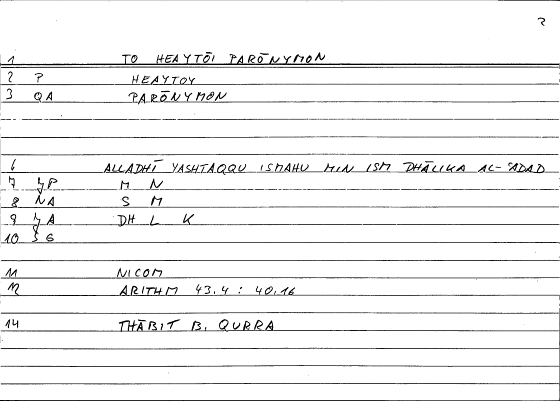 2
1 TO HEAYTŌI PARŌNYMON
2 P HEAYTOY
3 QA PARŌNYMON
6 ALLADHĪ YASHTAQQU ISMAHU MIN ISM DHĀLIKA AL-ʿADAD
7 P M N
8 NA S M
9 A DH L K
10 G
11 NICOM
12 ARITHM 43.4 : 40.16
14 THĀBIT B. QURRA